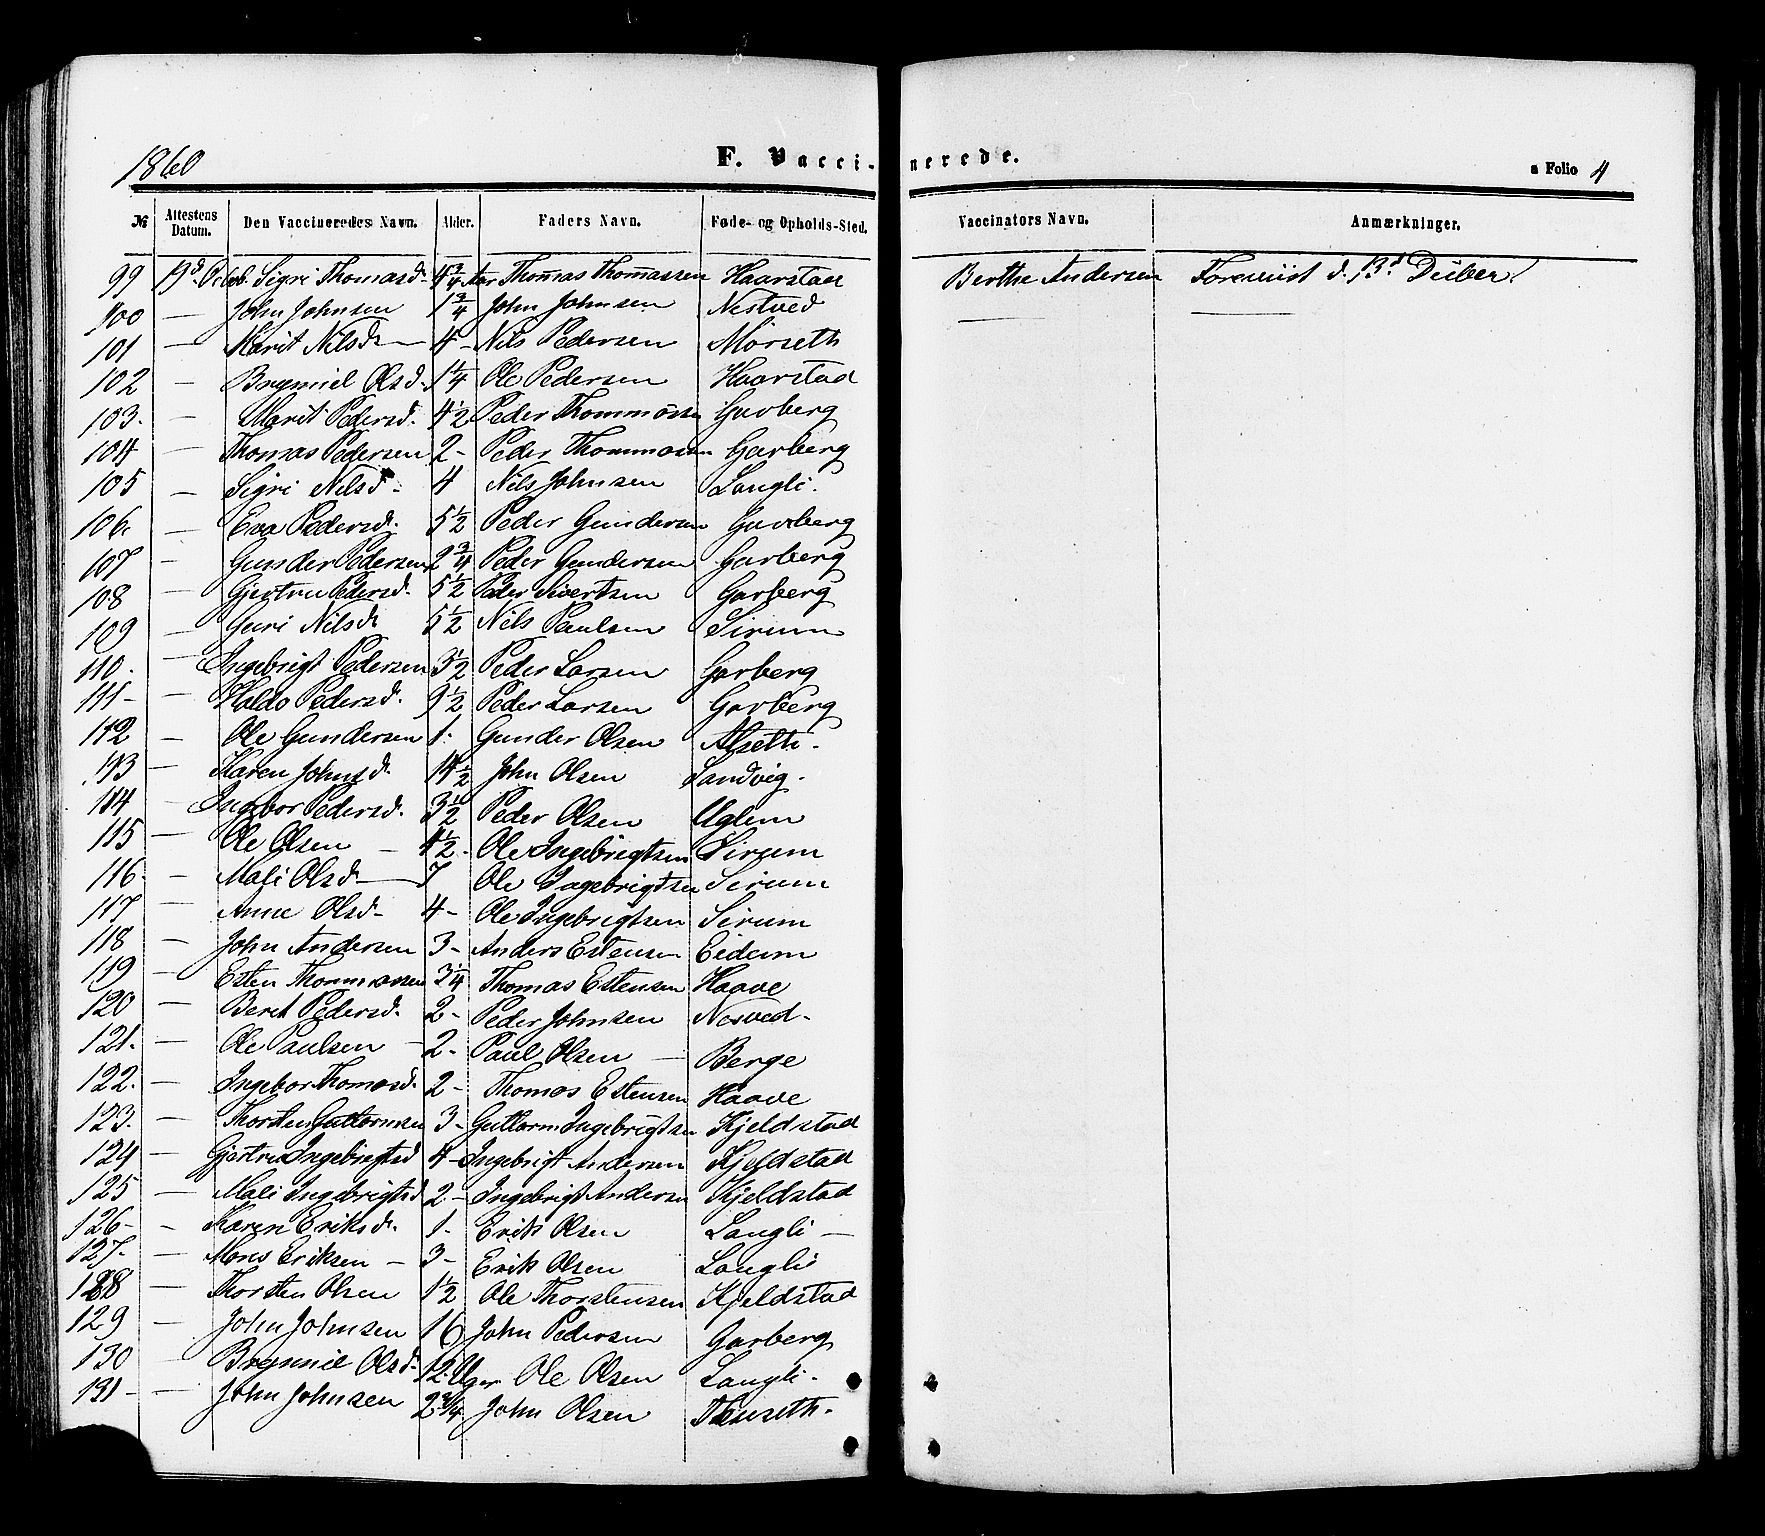 1860 F. Vaccinerede. Folio 4
№ Attestens Datum. Den Vaccineredes Navn. Alder. Faders Navn. Føde- og Opholds-Sted. Vaccinators Navn. Anmærkninger.
99 19d Octob. Sigri Thomasd. 4 3/4 Aar Thomas Thomassen Haarstad Berthe Andersen Foreviist d. 13d Duber.
100 — John Johnsen 1 3/4 John Johnsen Nestved — —
101 — Marit Nilsd — 4 - Nils Pedersen Mörseth
102 — Brynniel Olsd. 1 1/4 Ole Pedersen Haarstad
103. — Marit Pedersd. 4 1/2 Peder Thommøssen Garberg
104 — Thomas Pedersen 2 - Peder Thommassen Garberg
105 — Sigri Nilsd - 4 Nils Johnsen Langli.
106. — Eva Pedersd. 5 1/2 Peder Gundersen Garberg
107 — Gunder Pedersen 2 3/4 Peder Gundersen Garberg
108 — Gjertru Pedersd. 5 1/2 Peder Sivertsen Garberg
109 — Guri Nilsd 5 1/2 Nils Paulsen Sirum
110. — Ingebrigt Pedersen 3 1/2 Peder Larsen Garberg
111 - — Haldo Pedersd. 9 1/2 Peder Larsen Garberg
112 — Ole Gundersen 1. Gunder Olsen Alseth.
113 — Karen Johnsd. 14 1/2 John Olsen Sandvig.
114 — Ingebor Pedersd. 3 1/2 Peder Olsen Uglem
115 — Ole Olsen — 4 1/2 - Ole Ingebrigtsen Sirum
116. - Mali Olsd — 7 Ole Ingebrigtsen Sirum
117 — Anne Olsd - 4 - Ole Ingebrigtsen Sirum
118 — John Andersen 3 - Anders Estensen Eidem
119 — Esten Thommassen 3 1/4 Thomas Estensen Haave
120 — Beret Pedersd. 2 - Peder Johnsen Nesved -
121. — Ole Paulsen — 2 - Paul Olsen — Berge
122. — Ingebor Thomasd. 2 - Thomas Estensen Haave
123. — Thorsten Guttormsen 3 - Guttorm Ingebrigtsen Kjeldstad
124 — Gjertru Ingebrigtsd 4 - Ingebrigt Andersen Kjeldstad
125 — Mali Ingebrigtsd 2 - Ingebrigt Andersen Kjeldstad
126 - — Karen Eriksd. 1 - Erik Olsen Langli —
127. — Mons Eriksen — 3 - Erik Olsen Langli
128 — Thorsten Olsen 1 1/2 Ole Thorstensen Kjeldstad
129 — John Johnsen 16 John Pedersen Garberg
130 — Brynniel Olsd. 12 Uger Ole Olsen Langli.
131 - — John Johnsen 2 3/4 John Olsen